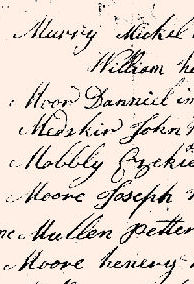 Murry Mickel
William he
Moor Danniel in
Medskir John
Mobbly Ezekie
Moore Joseph
Mullen Petter
Moore henery